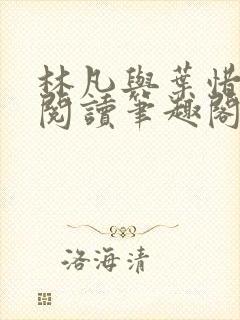 林凡與葉惜
閱讀筆趣閣
洛海清